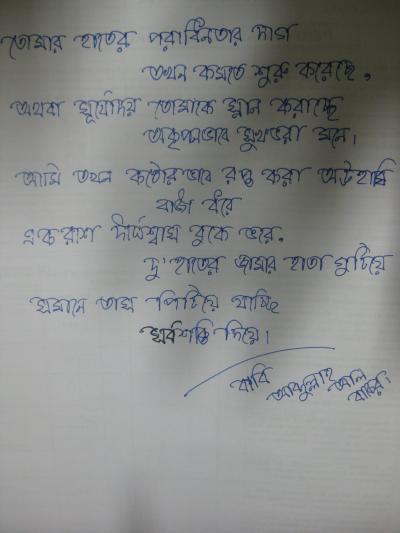 তোমার হাতের পরাধিনতার দাগ
তখন কমতে শুরু করেছে,
অথবা সূর্যোদয় তোমাকে স্নান করাচ্ছে
অকৃপনভাবে সুখভরা মনে।
আমি তখন কঠোরভাবে রপ্ত করা অট্টহাসি
বাজি ধরে
একরাশ দীর্ঘশ্বাস বুকে ভরে.
দু'হাতের জামার হাতা গুটিয়ে
সমানে তাস পিটিয়ে যাচ্ছি
সর্বশক্তি দিয়ে।
আব্দুল্লাহ আল